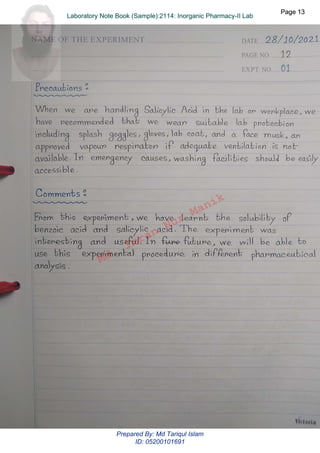 Laboratory Note Book (Sample):2114: Inorganic Pharmacy-II Lab
Page 13
NAME OF THE EXPERIMENT
DATE 28/10/2021
PAGE NO 12
EXPT NO 01
Precautions :
When we are handling Salicylic Acid in the lab or workplace, we
have recommended that we wear suitable lab protection
including splash goggles, gloves, lab coat, and a face musk, an
approved vapour respirator if adequate ventilation is not
available. In emergency causes, washing facilities should be easily
accessible.
Comments :
From this experiment, we have learnt the solubility of
benzoic acid and salicylic acid. The experiment was
interesting and useful. In fure future, we will be able to
use this experimental procedure in different pharmaceutical
analysis.
Manik
Victoria
Prepared By: Md Tariqul Islam
ID: 05200101691